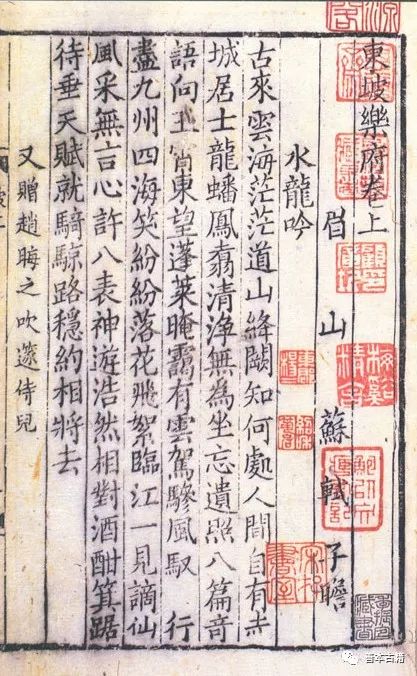 東坡樂府卷上
眉山 蘇軾 子瞻
水龍吟
古來雲海茫茫道山絳闕知何處人間自有赤
城居士龍蟠鳳翥清淨無為坐忘遺照八篇奇
語向玉霄東望蓬萊晻靄有雲駕驂風馭 行
盡九州四海笑紛紛落花飛絮臨江一見謫仙
風采無言心許八表神遊浩然相對酒酣箕踞
待垂天賦就騎鯨路穩約相將去
又贈趙晦之吹篴侍兒
善本古籍